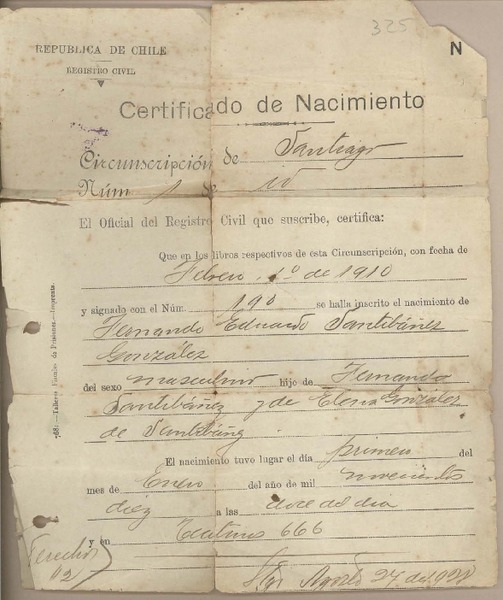 325
REPUBLICA DE CHILE
REGISTRO CIVIL
N
Certificado de Nacimiento
Circunscripción de Santiago
Núm. 1 de id
El Oficial del Registro Civil que suscribe, certifica:
Que en los libros respectivos de esta Circunscripción, con fecha de
Febrero 1º de 1910
y signado con el Núm. 190 se halla inscrito el nacimiento de
Fernando Eduardo Santibáñez
González
del sexo masculino hijo de Fernando
Santibáñez y de Elena González
de Santibáñez
El nacimiento tuvo lugar el día primero del
mes de Enero del año de mil novecientos
diez a las doce del dia
y en 666
Derechos
$2
Agosto 27 de
768.—Talleres Fiscales de Prisiones.—Imprenta.